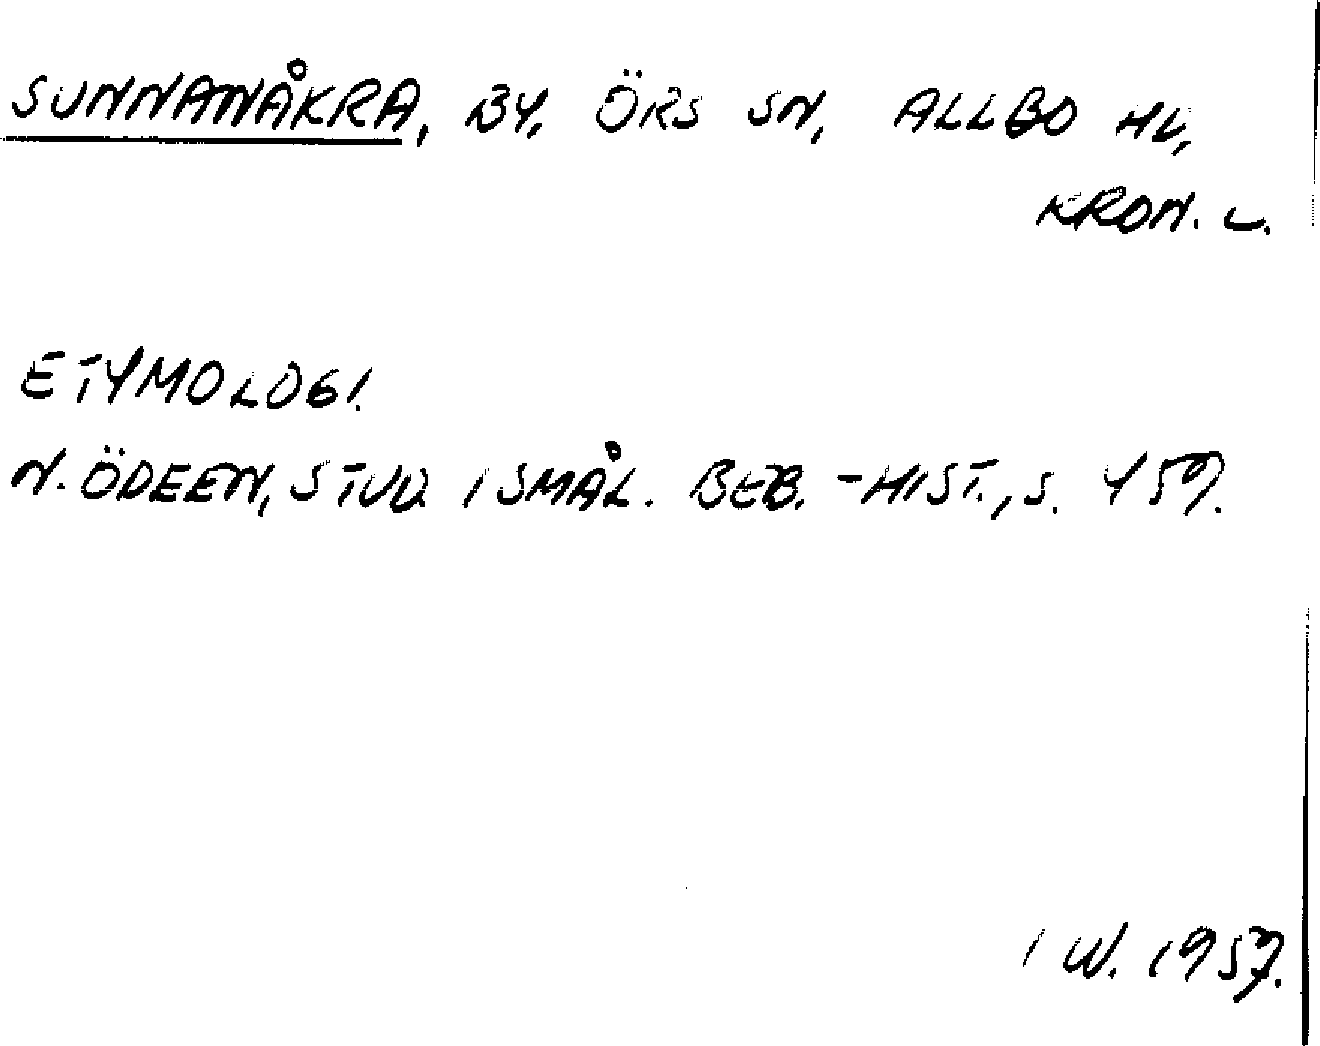 SUNNANÅKRA, BY, ÖRS SN, ALLBO HD,
KRON. L.
ETYMOLOGI.
N. ÖDEEN, STUD. I SMÅL. BEB.-HIST., S. 459.
I W. 1957.